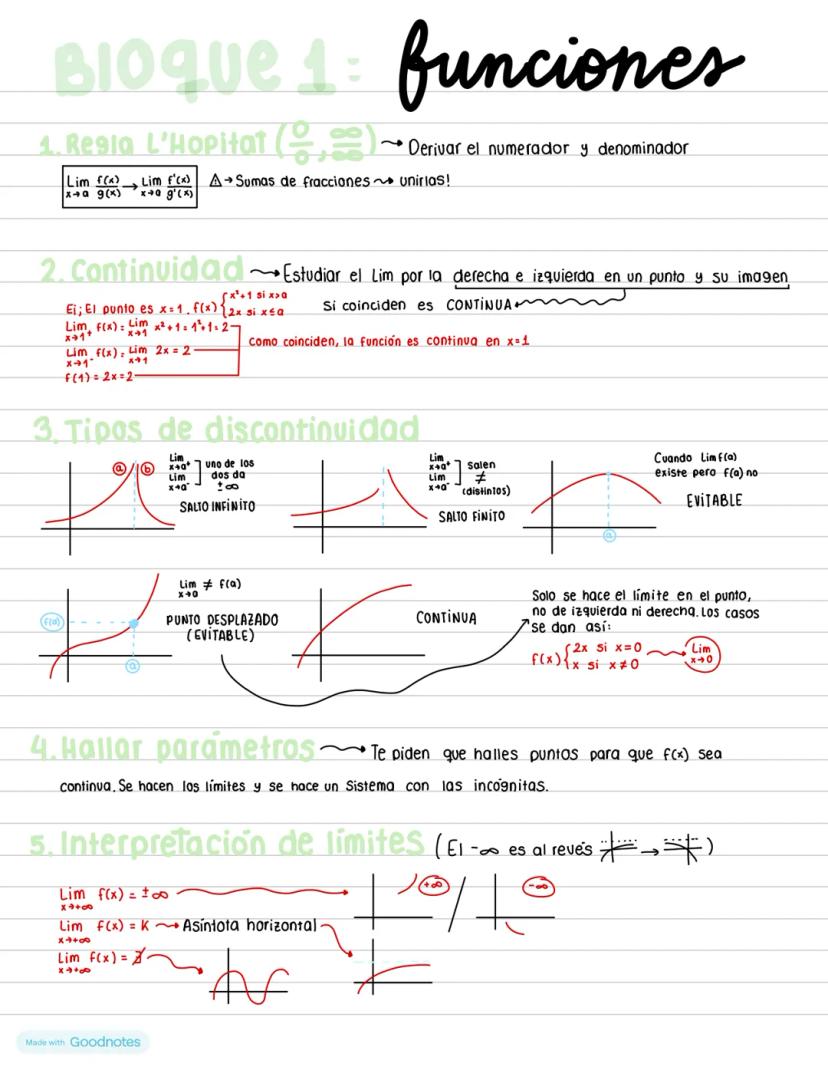 Bloque 1: funciones
1. Regla L'Hopitat (0/0, ∞/∞) → Derivar el numerador y denominador
Lim x→a f(x)/g(x) → Lim x→a f'(x)/g'(x) ⚠ → Sumas de fracciones ⇝ unirlas!
2. Continuidad → Estudiar el Lim por la derecha e izquierda en un punto y su imagen
Si coinciden es CONTINUA
Ej; El punto es x=1. f(x) { x²+1 si x>a
2x si x≤a
Lim x→1⁺ f(x) = Lim x→1 x²+1 = 1²+1 = 2
Lim x→1⁻ f(x) = Lim x→1 2x = 2
f(1) = 2x = 2
como coinciden, la función es continua en x=1
3. Tipos de discontinuidad
a b
Lim x→a⁺
Lim x→a⁻
uno de los
dos da
±∞
SALTO INFINITO
Lim x→a⁺
Lim x→a⁻
Salen
≠
(distintos)
SALTO FINITO
Cuando Lim f(a)
existe pero f(a) no
EVITABLE
a
f(a)
a
Lim x→a ≠ f(a)
PUNTO DESPLAZADO
(EVITABLE)
CONTINUA
Solo se hace el límite en el punto,
no de izquierda ni derecha. Los casos
se dan así:
f(x) { 2x si x=0
x si x≠0
Lim x→0
4. Hallar parámetros → Te piden que halles puntos para que f(x) sea
continua. Se hacen los límites y se hace un Sistema con las incógnitas.
5. Interpretación de límites (El -∞ es al revés → )
Lim x→+∞ f(x) = ±∞
+∞ / -∞
Lim x→+∞ f(x) = K → Asíntota horizontal
Lim x→+∞ f(x) = ∄
Made with Goodnotes